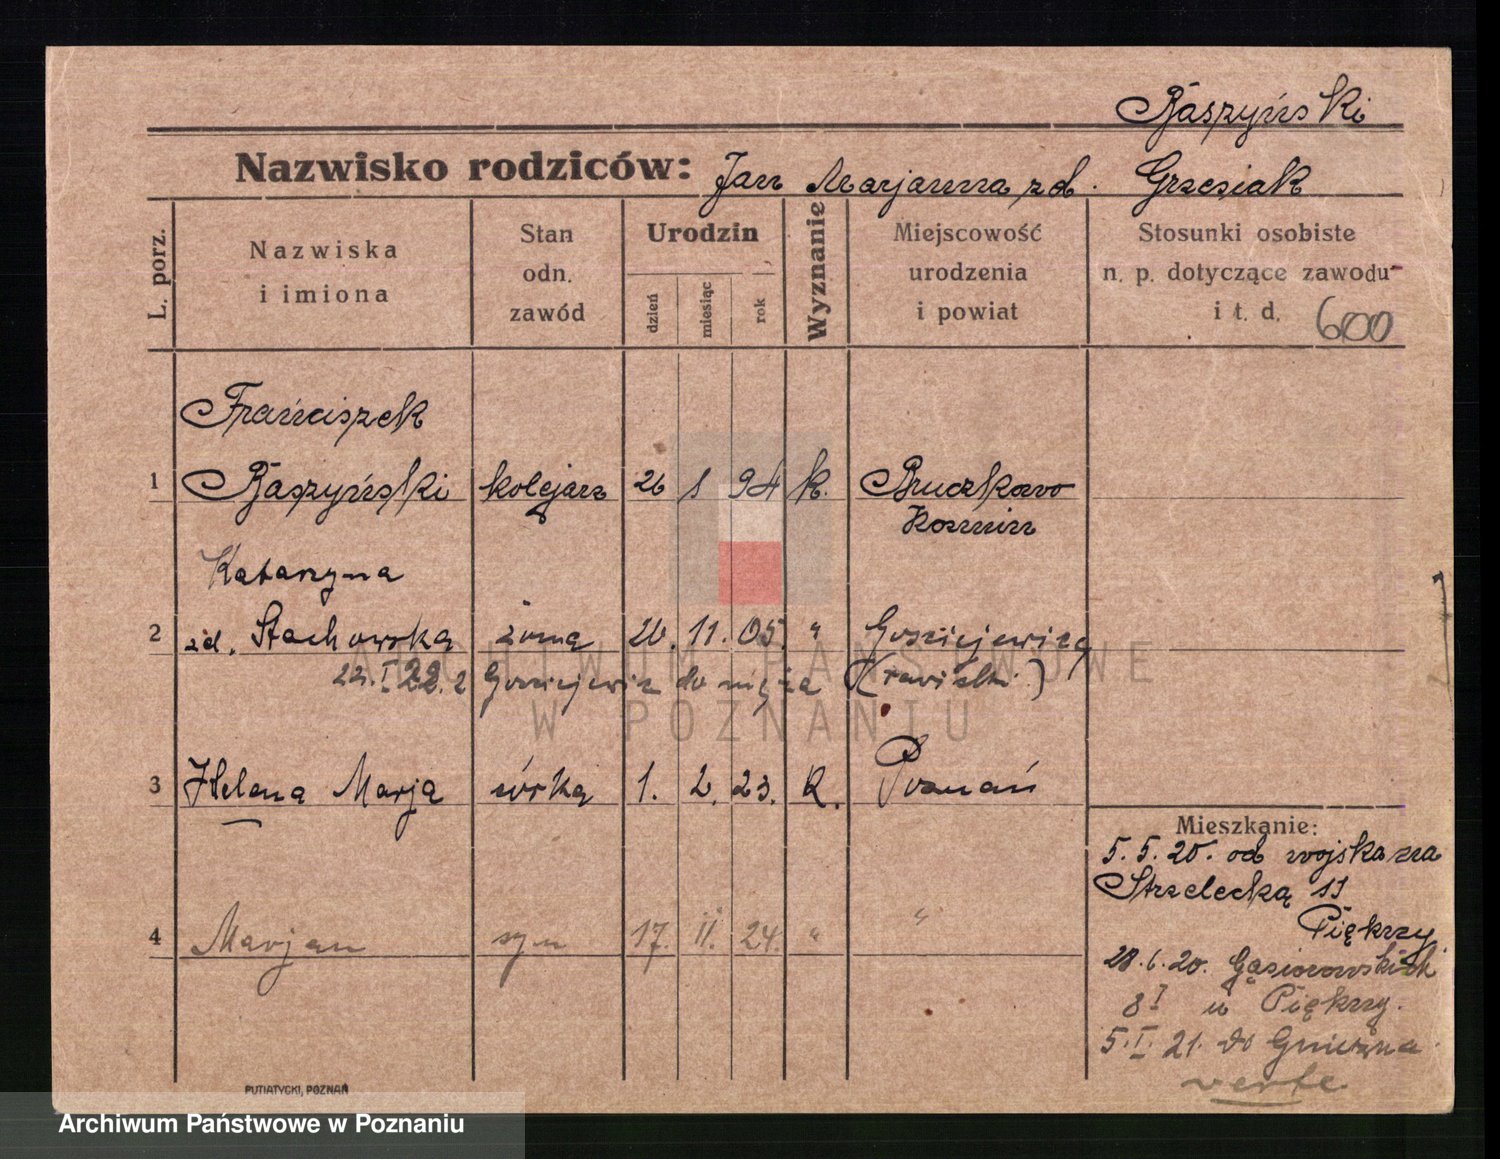 Baszyński
Nazwisko rodziców: Jan Marjanna zd. Grzesiak
L. porz.
Nazwiska
i imiona
Stan
odn.
zawód
Urodzin
dzień
miesiąc
rok
Wyznanie
Miejscowość
urodzenia
i powiat
Stosunki osobiste
n. p. dotyczące zawodu
i t. d. 600
Franciszek
1 Baszyński kolejarz 26 1 94 k. Bruczkowo
Kozmin
Katarzyna
2 zd. Stachowska żona 26. 11. 05. " Gościejewice
22. I 22. z Gościejewic do męża (rawitski)
3 Helena Marja córka 1. 2. 23. k. Poznań
4 Marjan syn 17. II. 24. " "
Mieszkanie:
5. 5. 20. od wojska na
Strzelecką 11
Piękrzy
28. 6. 20. Gąsiorowskich
8 I u Piękrzy.
5. I. 21. do Gniezna
verte
PUTIATYCKI, POZNAŃ
ARCHIWUM PAŃSTWOWE
W POZNANIU
Archiwum Państwowe w Poznaniu